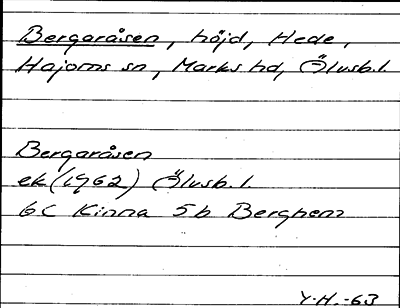 Bergaråsen, höjd, Hede,
Hajoms sn, Marks hd, Älvsb.l.
Bergaråsen
ek (1962) Älvsb.l.
6C Kinna 5b Berghem
Y.H.-63